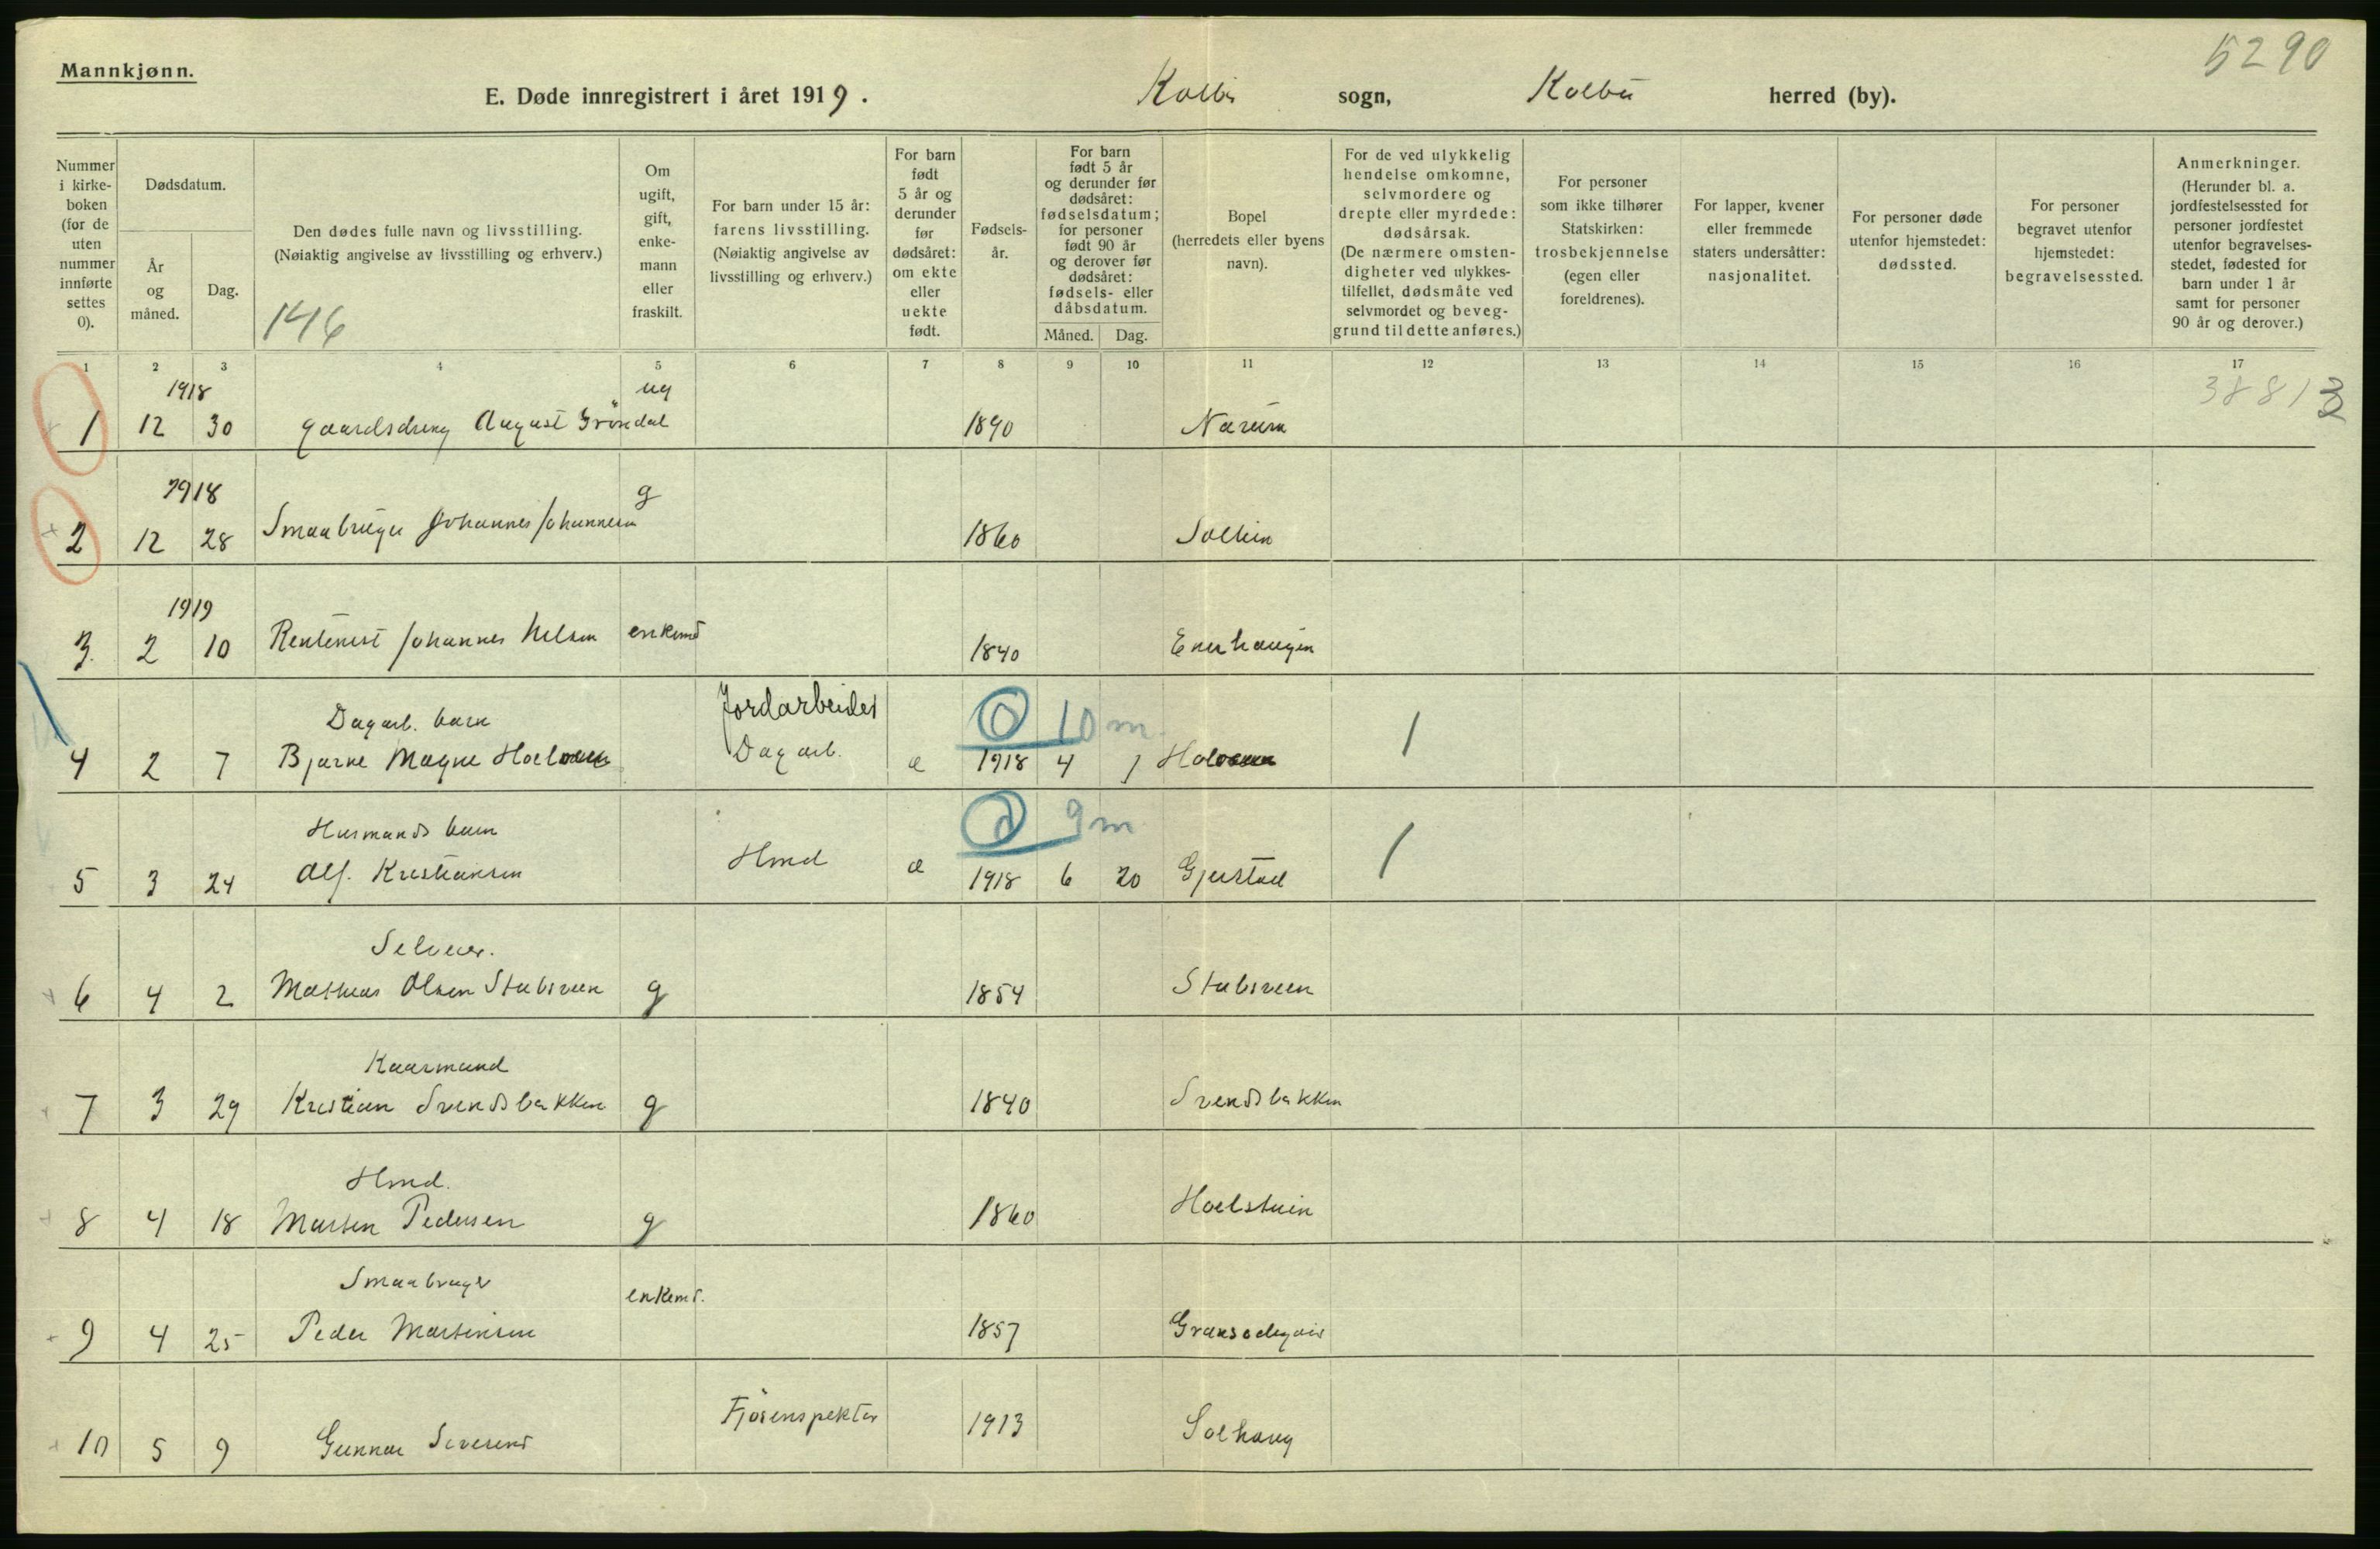 5290
Mannkjønn.
E. Døde innregistrert i året 1919. Kolbu sogn, Kolbu herred (by).
Nummer i kirke- boken (for de uten nummer innførte settes 0).
Dødsdatum.
År og måned.
Dag.
Den dødes fulle navn og livsstilling.
(Nøiaktig angivelse av livsstilling og erhverv.)
146
Om ugift, gift, enke- mann eller fraskilt.
For barn under 15 år: farens livsstilling. (Nøiaktig angivelse av livsstilling og erhverv.)
For barn født 5 år og derunder før dødsåret: om ekte eller uekte født.
Fødsels- år.
For barn født 5 år og derunder før dødsåret: fødselsdatum; for personer født 90 år og derover før dødsåret: fødsels- eller dåbsdatum.
Måned. Dag.
Bopel (herredets eller byens navn).
For de ved ulykkelig hendelse omkomne, selvmordere og drepte eller myrdede: dødsårsak. (De nærmere omsten- digheter ved ulykkes- tilfellet, dødsmåte ved selvmordet og beveg- grund til dette anføres.)
For personer som ikke tilhører Statskirken: trosbekjennelse (egen eller foreldrenes).
For lapper, kvener eller fremmede staters undersåtter: nasjonalitet.
For personer døde utenfor hjemstedet: dødssted.
For personer begravet utenfor hjemstedet: begravelsessted.
Anmerkninger. (Herunder bl. a. jordfestelsessted for personer jordfestet utenfor begravelses- stedet, fødested for barn under 1 år samt for personer 90 år og derover.)
1 2 3 4 5 6 7 8 9 10 11 12 13 14 15 16 17
1918 ug 3881 3
1 12 30 gaardsdreng August Gröndal 1890 Narum
1918 g
2 12 28 Smaabruger Johannes Johannesen 1860
1919
3. 2 10 Rentenist Johannes Nelsen enkemd 1840 Enerhaugen
Dagarb. barn Jordarbeider 0 10 m
4 2 7 Bjarne Magne Dagarb. e 1918 4 1 1
Husmands barn 0 9 m
5 3 24 Alf. Kristiansen Hmd e 1918 6 20 Gjerstad 1
Selveier.
6 4 2 Mathias Olsen Stubsveen g 1854 Stubsveen
Kaarmand
7 3 29 Kristian Svendsbakken g 1840 Svendsbakken
Hmd.
8 4 18 Martin Pedersen g 1860 Hoelstuen
Smaabruger enkemd.
9 4 25 Peder Martinsen 1857
10 5 9 Gunnar Fjösinspektör 1913 Solhaug